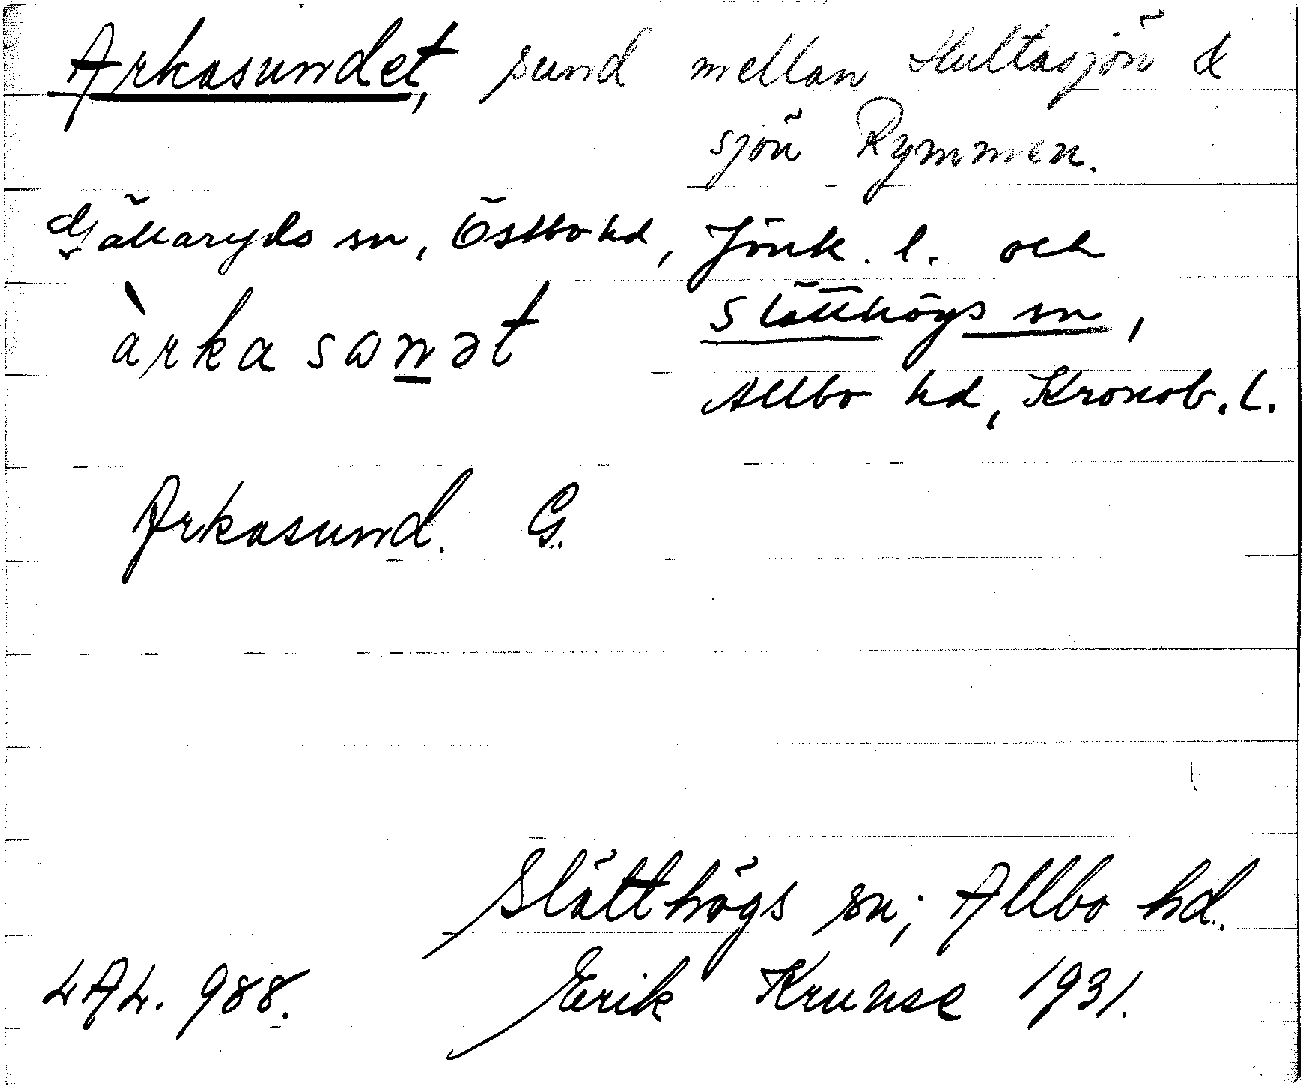 Arkasundet, sund mellan Hultasjön &
sjön Rymmen.
Gällaryds sn, Östbo hd, Jönk. l. och
àrkasanət Slätthögs sn,
Allbo hd, Kronob. l.
Arkasund. G.
Slätthögs sn; Allbo hd.
LAL. 988. Erik Krunse 1931.